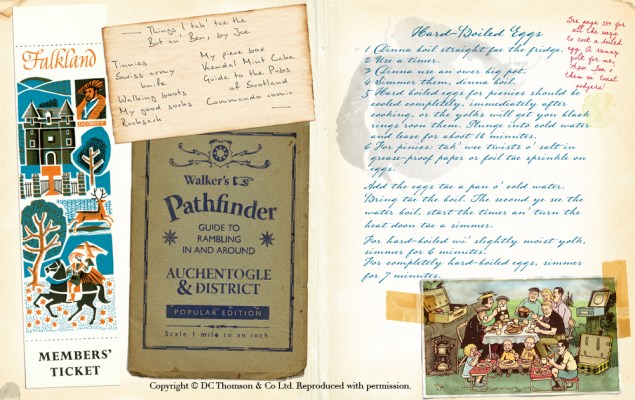 Falkland
JAMES V
MEMBERS'
TICKET
Things I tak' tae the
But an' Ben, by Joe
Tinnies
Swiss army
knife
Walking boots
My good socks
Rucksack
My piece box
Kendal Mint Cake
Guide to the Pubs
of Scotland
Commando comic
Walker's
Pathfinder
GUIDE TO
RAMBLING
IN AND AROUND
AUCHENTOGLE
& DISTRICT
POPULAR EDITION
Scale 1 mile to an inch
Hard-Boiled Eggs
1 Dinna boil straight fae the fridge.
2 Use a timer.
3 Dinna use an ower big pot.
4 Simmer them, dinna boil.
5 Hard boiled eggs for picnics should be
cooled completely, immediately after
cooking, or the yolks will get you black
rings roon them. Plunge into cold water
and leave for about 10 minutes.
6 For picnics: tak' wee twists o' salt in
grease-proof paper or foil tae sprinkle on
eggs.
Add the eggs tae a pan o' cold water.
Bring tae the boil. The second ye see the
water boil, start the timer an' turn the
heat doon tae a simmer.
For hard-boiled wi' slightly moist yolk,
simmer for 6 minutes.
For completely hard-boiled eggs, simmer
for 7 minutes.
See page
for
all the ways
to cook a boiled
egg. A runny
yolk for me,
then I
them in toast
sodgers!
Copyright © DC Thomson & Co Ltd. Reproduced with permission.